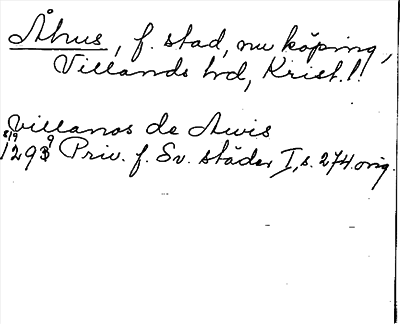 Åhus, f. stad, nu köping,
Villands hd, Krist. l.
villanos de Awis
8/9 1293 Priv. f. Sv. städer I, s. 274 orig.